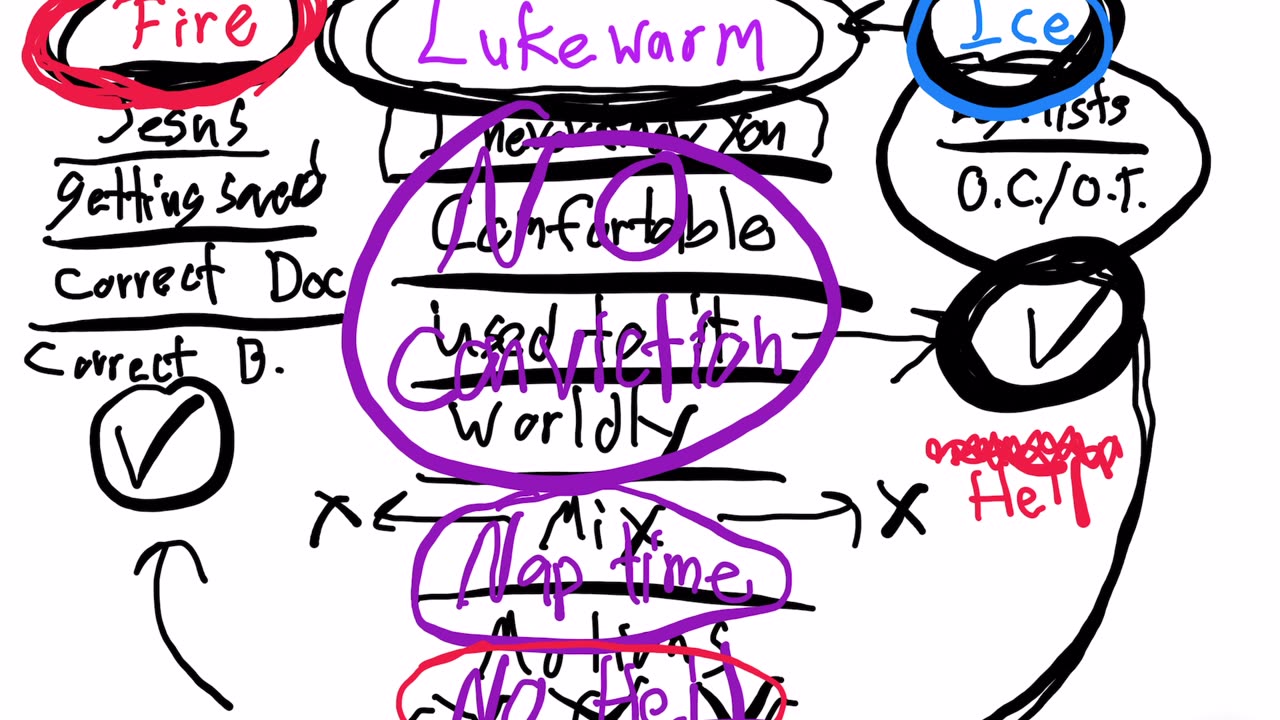 Fire
Jesus
getting saved
Correct Doc
Correct B.
Lukewarm
I never knew You
Comfortable
used to it
worldly
Mix
X
X
No
Conviction
Nap time
No Hell
Ice
O.C./O.T.
Hell